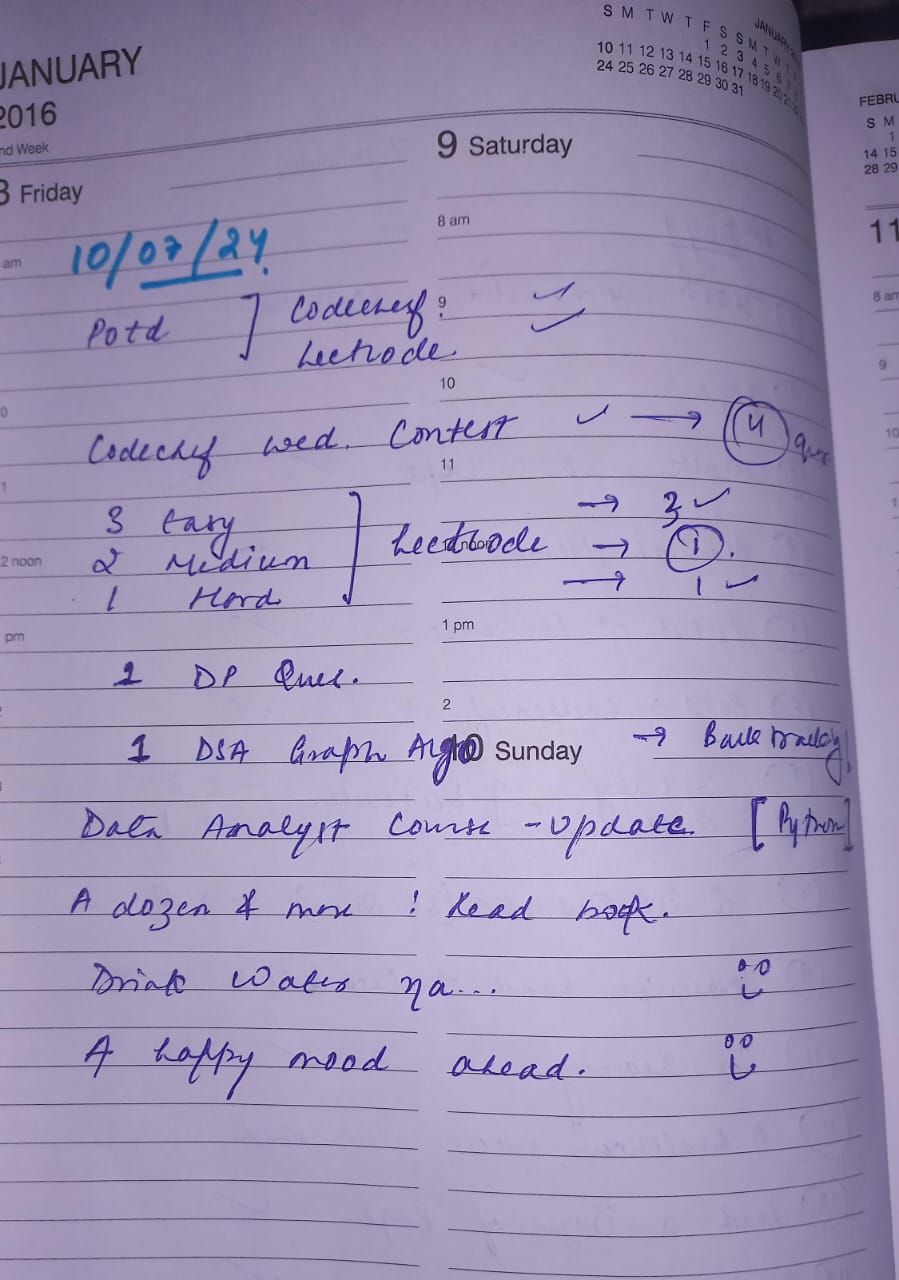 JANUARY
2016
nd Week
S M T W T F S S M T W
1 2 3 4 5 6
10 11 12 13 14 15 16 17 18 19 20
24 25 26 27 28 29 30 31
JANUARY
FEBRU
S M
1
14 15
28 29
11
8 am
9
10
Friday
9 Saturday
am
8 am
10/07/24.
Potd ] Codechef.
Leetcode.
9
✓
✓
10
Codechef wed. Contest ✓ → 4 ques
11
3 Easy → 3 ✓
2 Medium ] Leetcode → 1.
1 Hard → 1 ✓
2 noon
pm
1 pm
1 DP Ques.
2
1 DSA Graph Algo → Backtracking
10 Sunday
Data Analyst Course - Update. [Python]
A dozen & more ! Read book.
Drink Water na...
A happy mood ahead.